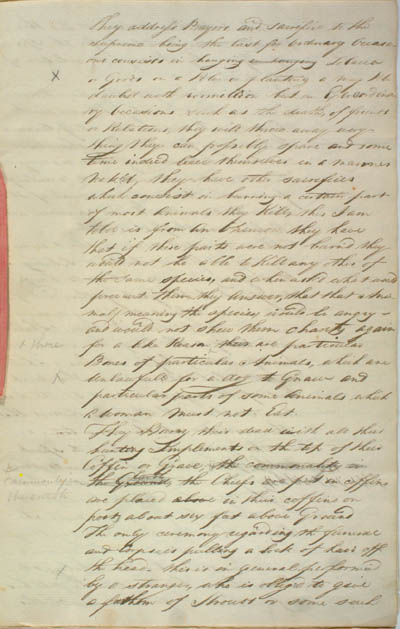 They address Prayers and Sacrifice to the
Supreme being the last for ordinary occasi
ons consists in hanging Tobacco
or Goods on a Pole or planting a
daubed with vermillion but on Extraordina
ry Occasions such as the death of friends
or Relations, they will throw away every
thing they can possibly spare and some
time indeed leave themselves in a manner
Naked, they have other sacrifices
which consist in burning a certain part
of most Animals they Kill, this I am
told is from an Opinion they have
that if these parts were not burnt they
would not be able to kill any others of
the same species, and when asked what would
prevent them they Answer, that that Ani
mal, meaning the species, would be angry
and would not shew them charity again
for a like Reason there are particular
Bones of particular Animals, which are
unlawful for a dog to Gnaw and
particular parts of some Animals which
a woman must not Eat.
They Bury their dead with all their
hunting Implements on the top of their
Coffin or Grave, the commonality in
the Ground, the Chiefs are put in coffins
are placed above in their coffins on
posts about six feet above Ground
The only ceremony regarding the funeral
and Corpse is pulling a lock of hair off
the head. this is in general performed
by a stranger, who is obliged to give
a fathom of Strouds or some such
x
+ there
^
Commonality in
the earth
+